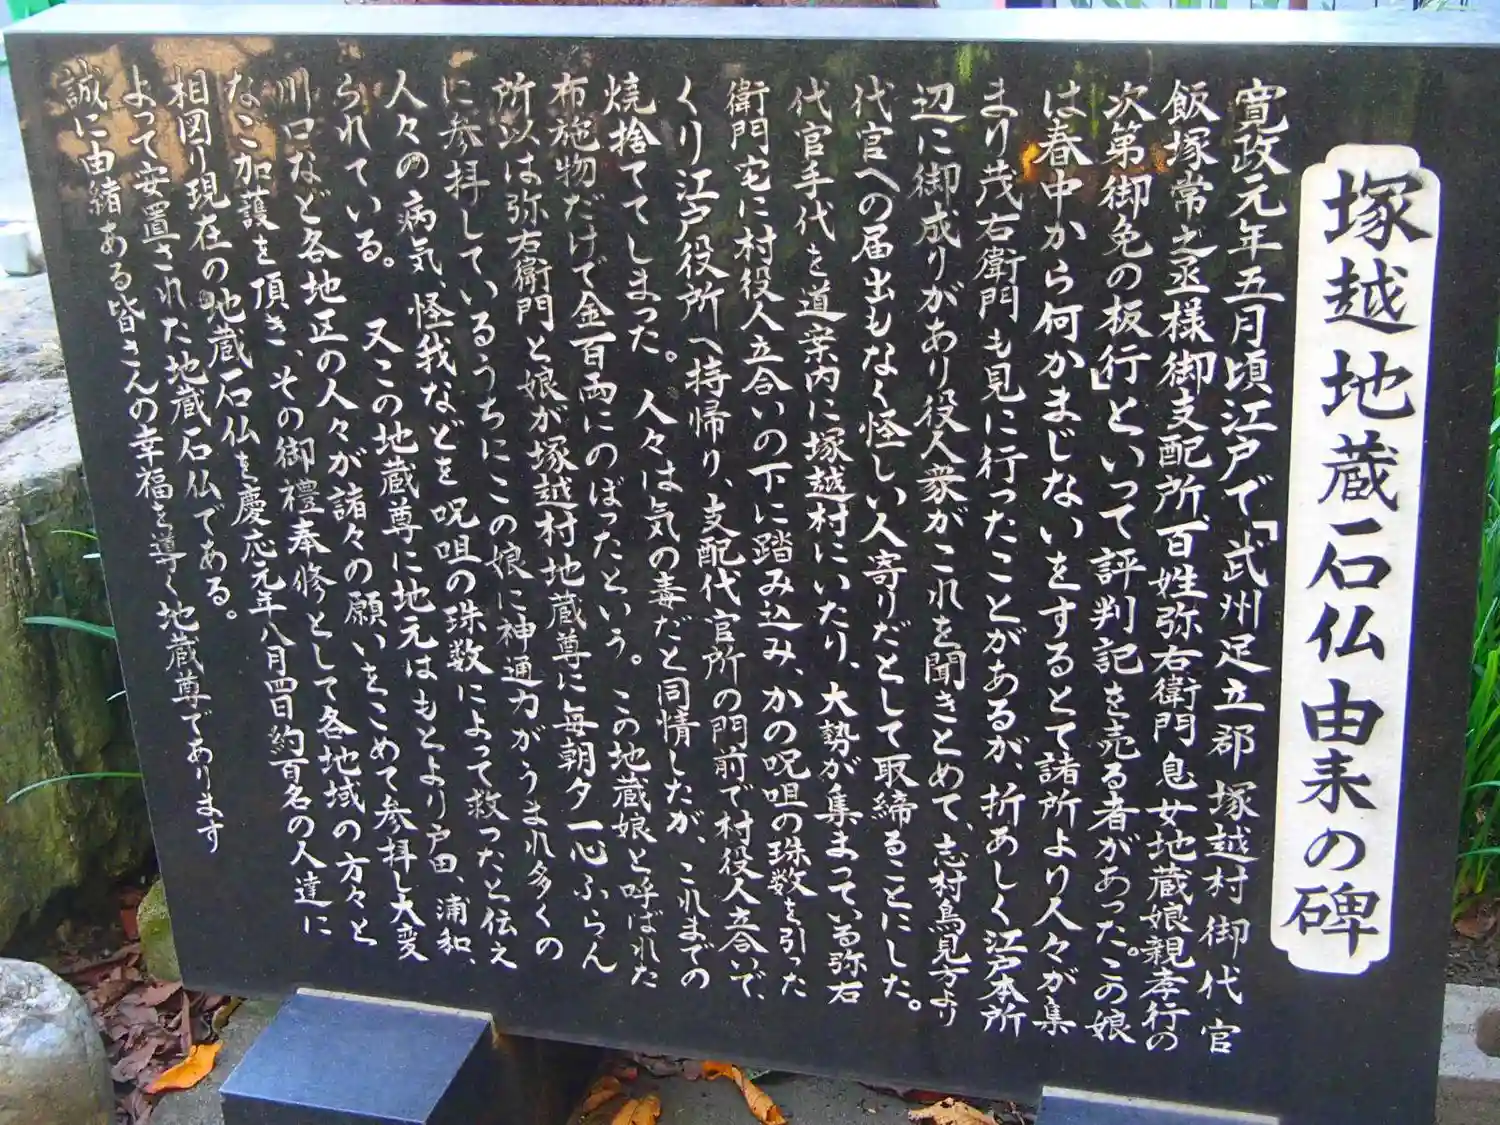 塚越地蔵石仏由来の碑
寛政元年五月頃江戸で「武州足立郡塚越村御代官
飯塚常之丞様御支配所百姓弥右衛門息女地蔵娘親孝行の
次第御免の板行」といって評判記を売る者があった。この娘
は春中から何かまじないをするとて諸所より人々が集
まり茂右衛門も見に行ったことがあるが、折あしく江戸本所
辺に御成りがあり役人衆がこれを聞きとめて、志村鳥見方より
代官への届出もなく怪しい人寄りだとして取締ることにした。
代官手代を道案内に塚越村にいたり、大勢が集まっている弥右
衛門宅に村役人立合いの下に踏み込み、かの呪咀の珠数を引った
くり江戸役所へ持帰り、支配代官所の門前で村役人立合いで、
焼捨ててしまった。人々は気の毒だと同情したが、これまでの
布施物だけで金百両にのぼったという。この地蔵娘と呼ばれた
所以は弥右衛門と娘が塚越村地蔵尊に毎朝夕一心ふらん
に参拝しているうちにこの娘に神通力がうまれ多くの
人々の病気、怪我などを呪咀の珠数によって救ったと伝え
られている。又この地蔵尊に地元はもとより戸田、浦和、
川口など各地区の人々が諸々の願いをこめて参拝し大変
なご加護を頂き、その御禮奉修として各地域の方々と
相図り現在の地蔵石仏を慶応元年八月四日約百名の人達に
よって安置された地蔵石仏である。
誠に由緒ある皆さんの幸福を導く地蔵尊であります